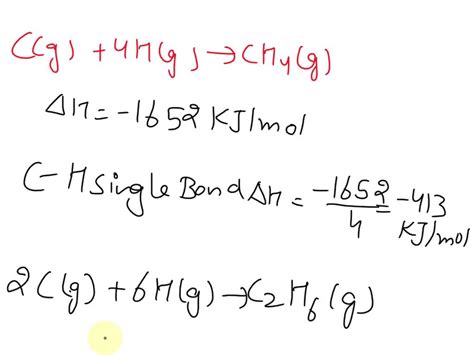 C(g) + 4H(g) → CH4(g)
ΔH = -1652 KJ/mol
C-H Single Bond ΔH = -1652/4 = -413 KJ/mol
2C(g) + 6H(g) → C2H6(g)